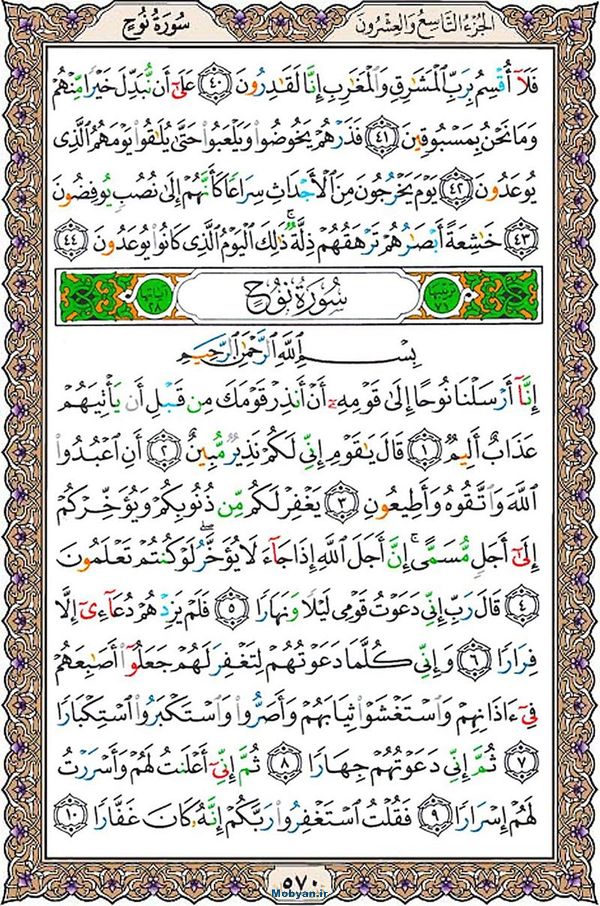 الجزء التاسع والعشرون
سورة نوح
فَلَآ أُقْسِمُ بِرَبِّ ٱلْمَشَٰرِقِ وَٱلْمَغَٰرِبِ إِنَّا لَقَٰدِرُونَ ٤٠ عَلَىٰٓ أَن نُّبَدِّلَ خَيْرًا مِّنْهُمْ
وَمَا نَحْنُ بِمَسْبُوقِينَ ٤١ فَذَرْهُمْ يَخُوضُوا۟ وَيَلْعَبُوا۟ حَتَّىٰ يُلَٰقُوا۟ يَوْمَهُمُ ٱلَّذِى
يُوعَدُونَ ٤٢ يَوْمَ يَخْرُجُونَ مِنَ ٱلْأَجْدَاثِ سِرَاعًا كَأَنَّهُمْ إِلَىٰ نُصُبٍ يُوفِضُونَ
٤٣ خَٰشِعَةً أَبْصَٰرُهُمْ تَرْهَقُهُمْ ذِلَّةٌ ۚ ذَٰلِكَ ٱلْيَوْمُ ٱلَّذِى كَانُوا۟ يُوعَدُونَ ٤٤
سورة نوح
بِسْمِ ٱللَّهِ ٱلرَّحْمَٰنِ ٱلرَّحِيمِ
إِنَّآ أَرْسَلْنَا نُوحًا إِلَىٰ قَوْمِهِۦٓ أَنْ أَنذِرْ قَوْمَكَ مِن قَبْلِ أَن يَأْتِيَهُمْ
عَذَابٌ أَلِيمٌ ١ قَالَ يَٰقَوْمِ إِنِّى لَكُمْ نَذِيرٌ مُّبِينٌ ٢ أَنِ ٱعْبُدُوا۟
ٱللَّهَ وَٱتَّقُوهُ وَأَطِيعُونِ ٣ يَغْفِرْ لَكُم مِّن ذُنُوبِكُمْ وَيُؤَخِّرْكُمْ
إِلَىٰٓ أَجَلٍ مُّسَمًّى ۚ إِنَّ أَجَلَ ٱللَّهِ إِذَا جَآءَ لَا يُؤَخَّرُ ۖ لَوْ كُنتُمْ تَعْلَمُونَ
٤ قَالَ رَبِّ إِنِّى دَعَوْتُ قَوْمِى لَيْلًا وَنَهَارًا ٥ فَلَمْ يَزِدْهُمْ دُعَآءِىٓ إِلَّا
فِرَارًا ٦ وَإِنِّى كُلَّمَا دَعَوْتُهُمْ لِتَغْفِرَ لَهُمْ جَعَلُوٓا۟ أَصَٰبِعَهُمْ
فِىٓ ءَاذَانِهِمْ وَٱسْتَغْشَوْا۟ ثِيَابَهُمْ وَأَصَرُّوا۟ وَٱسْتَكْبَرُوا۟ ٱسْتِكْبَارًا
٧ ثُمَّ إِنِّى دَعَوْتُهُمْ جِهَارًا ٨ ثُمَّ إِنِّىٓ أَعْلَنتُ لَهُمْ وَأَسْرَرْتُ
لَهُمْ إِسْرَارًا ٩ فَقُلْتُ ٱسْتَغْفِرُوا۟ رَبَّكُمْ إِنَّهُۥ كَانَ غَفَّارًا ١٠
٥٧٠
Mobyan.ir